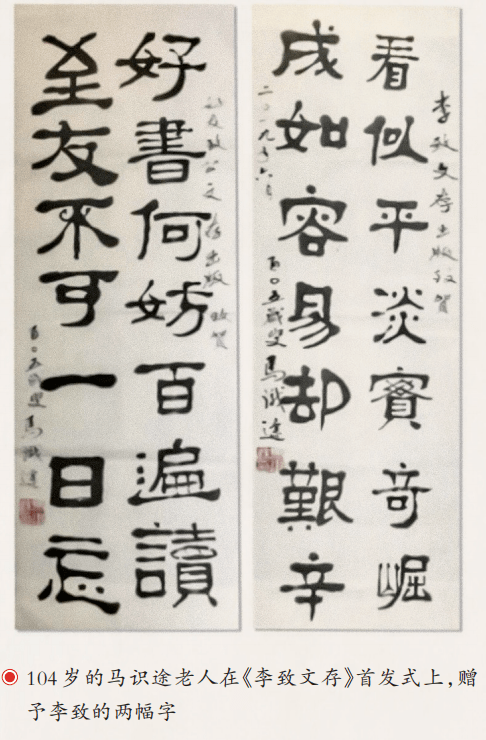 李致文存出版致賀
看似平淡實奇崛
成如容易却艱辛
二〇一九年六月
百〇五歲叟 馬識途
友致公文存出版 致賀
好書何妨百遍讀
至友不可一日忘
百〇五歲叟 馬識途
104岁的马识途老人在《李致文存》首发式上,赠
予李致的两幅字